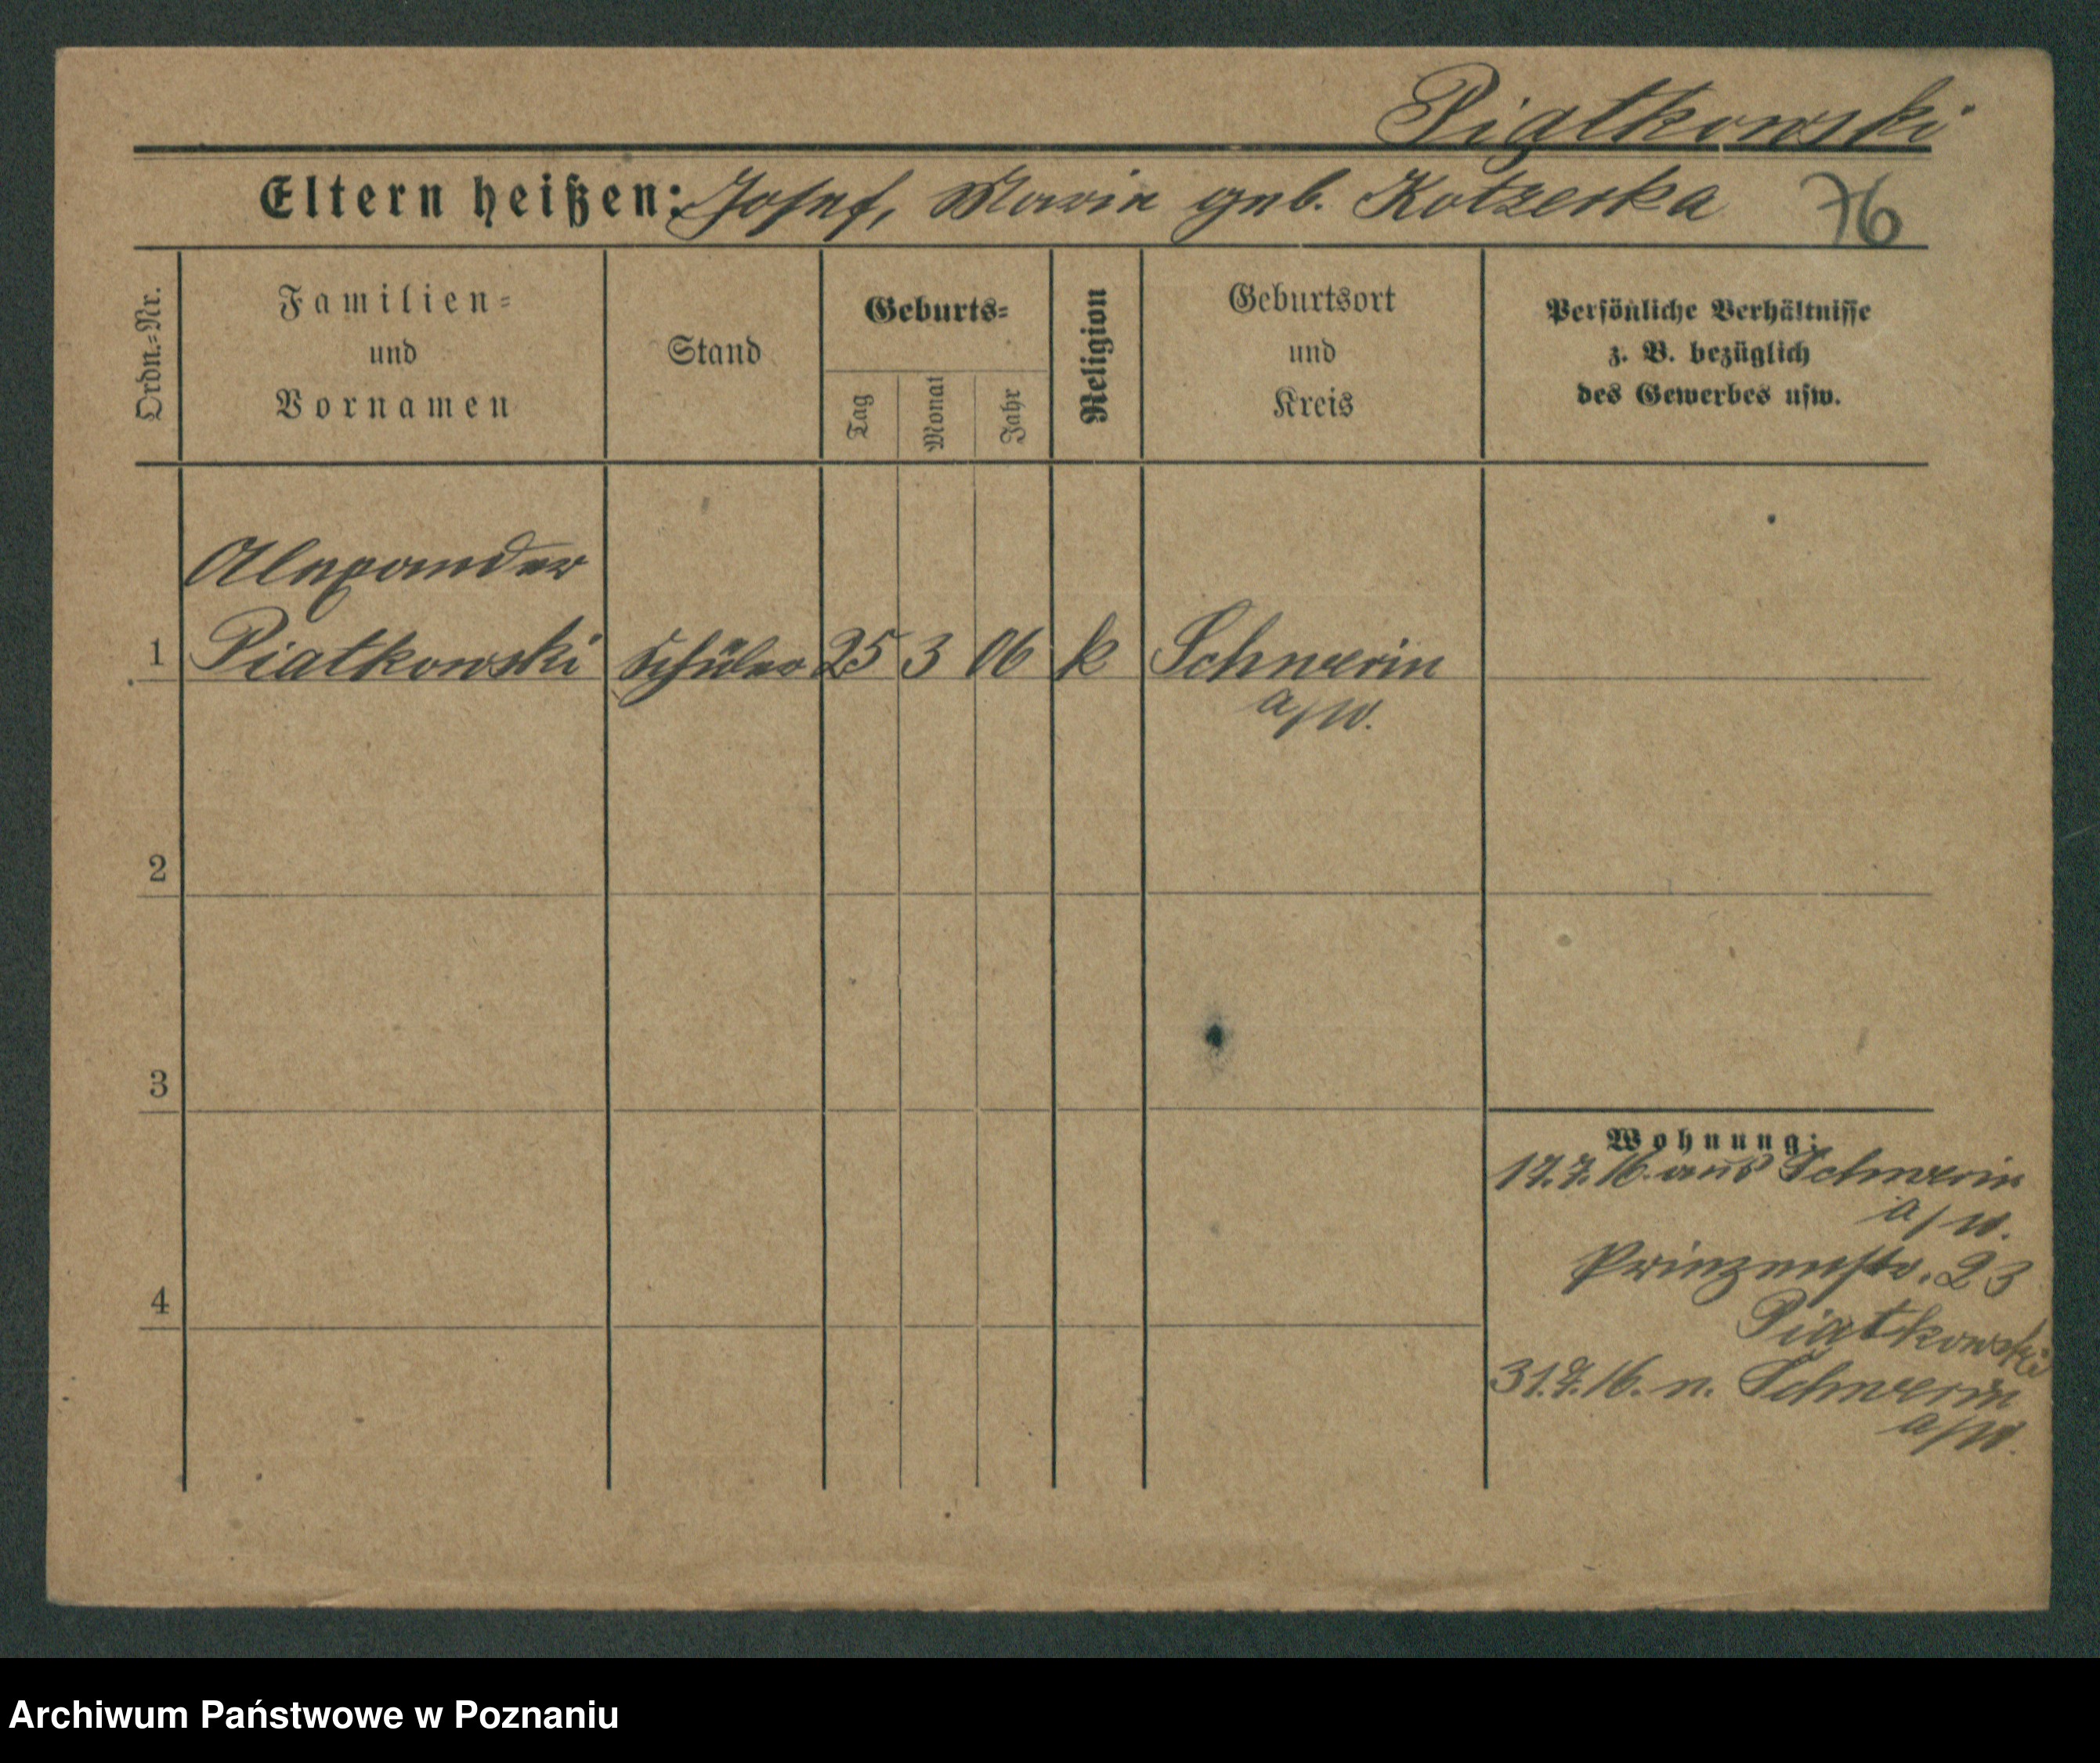 Piątkowski
Eltern heißen: Josef, Marie geb. Kotzerka 76
Ordn.-Nr.
Familien-
und
Vornamen
Stand
Geburts-
Tag
Monat
Jahr
Religion
Geburtsort
und
Kreis
Persönliche Verhältnisse
z. B. bezüglich
des Gewerbes usw.
Alexander
1 Piatkowski Schüler 25 3 06 k Schwerin
a/W.
2
3
4
Wohnung:
17.7.16. aus Schwerin
a/W.
Prinzenstr. 23
Piatkowski
31.7.16. n. Schwerin
a/W.
Archiwum Państwowe w Poznaniu